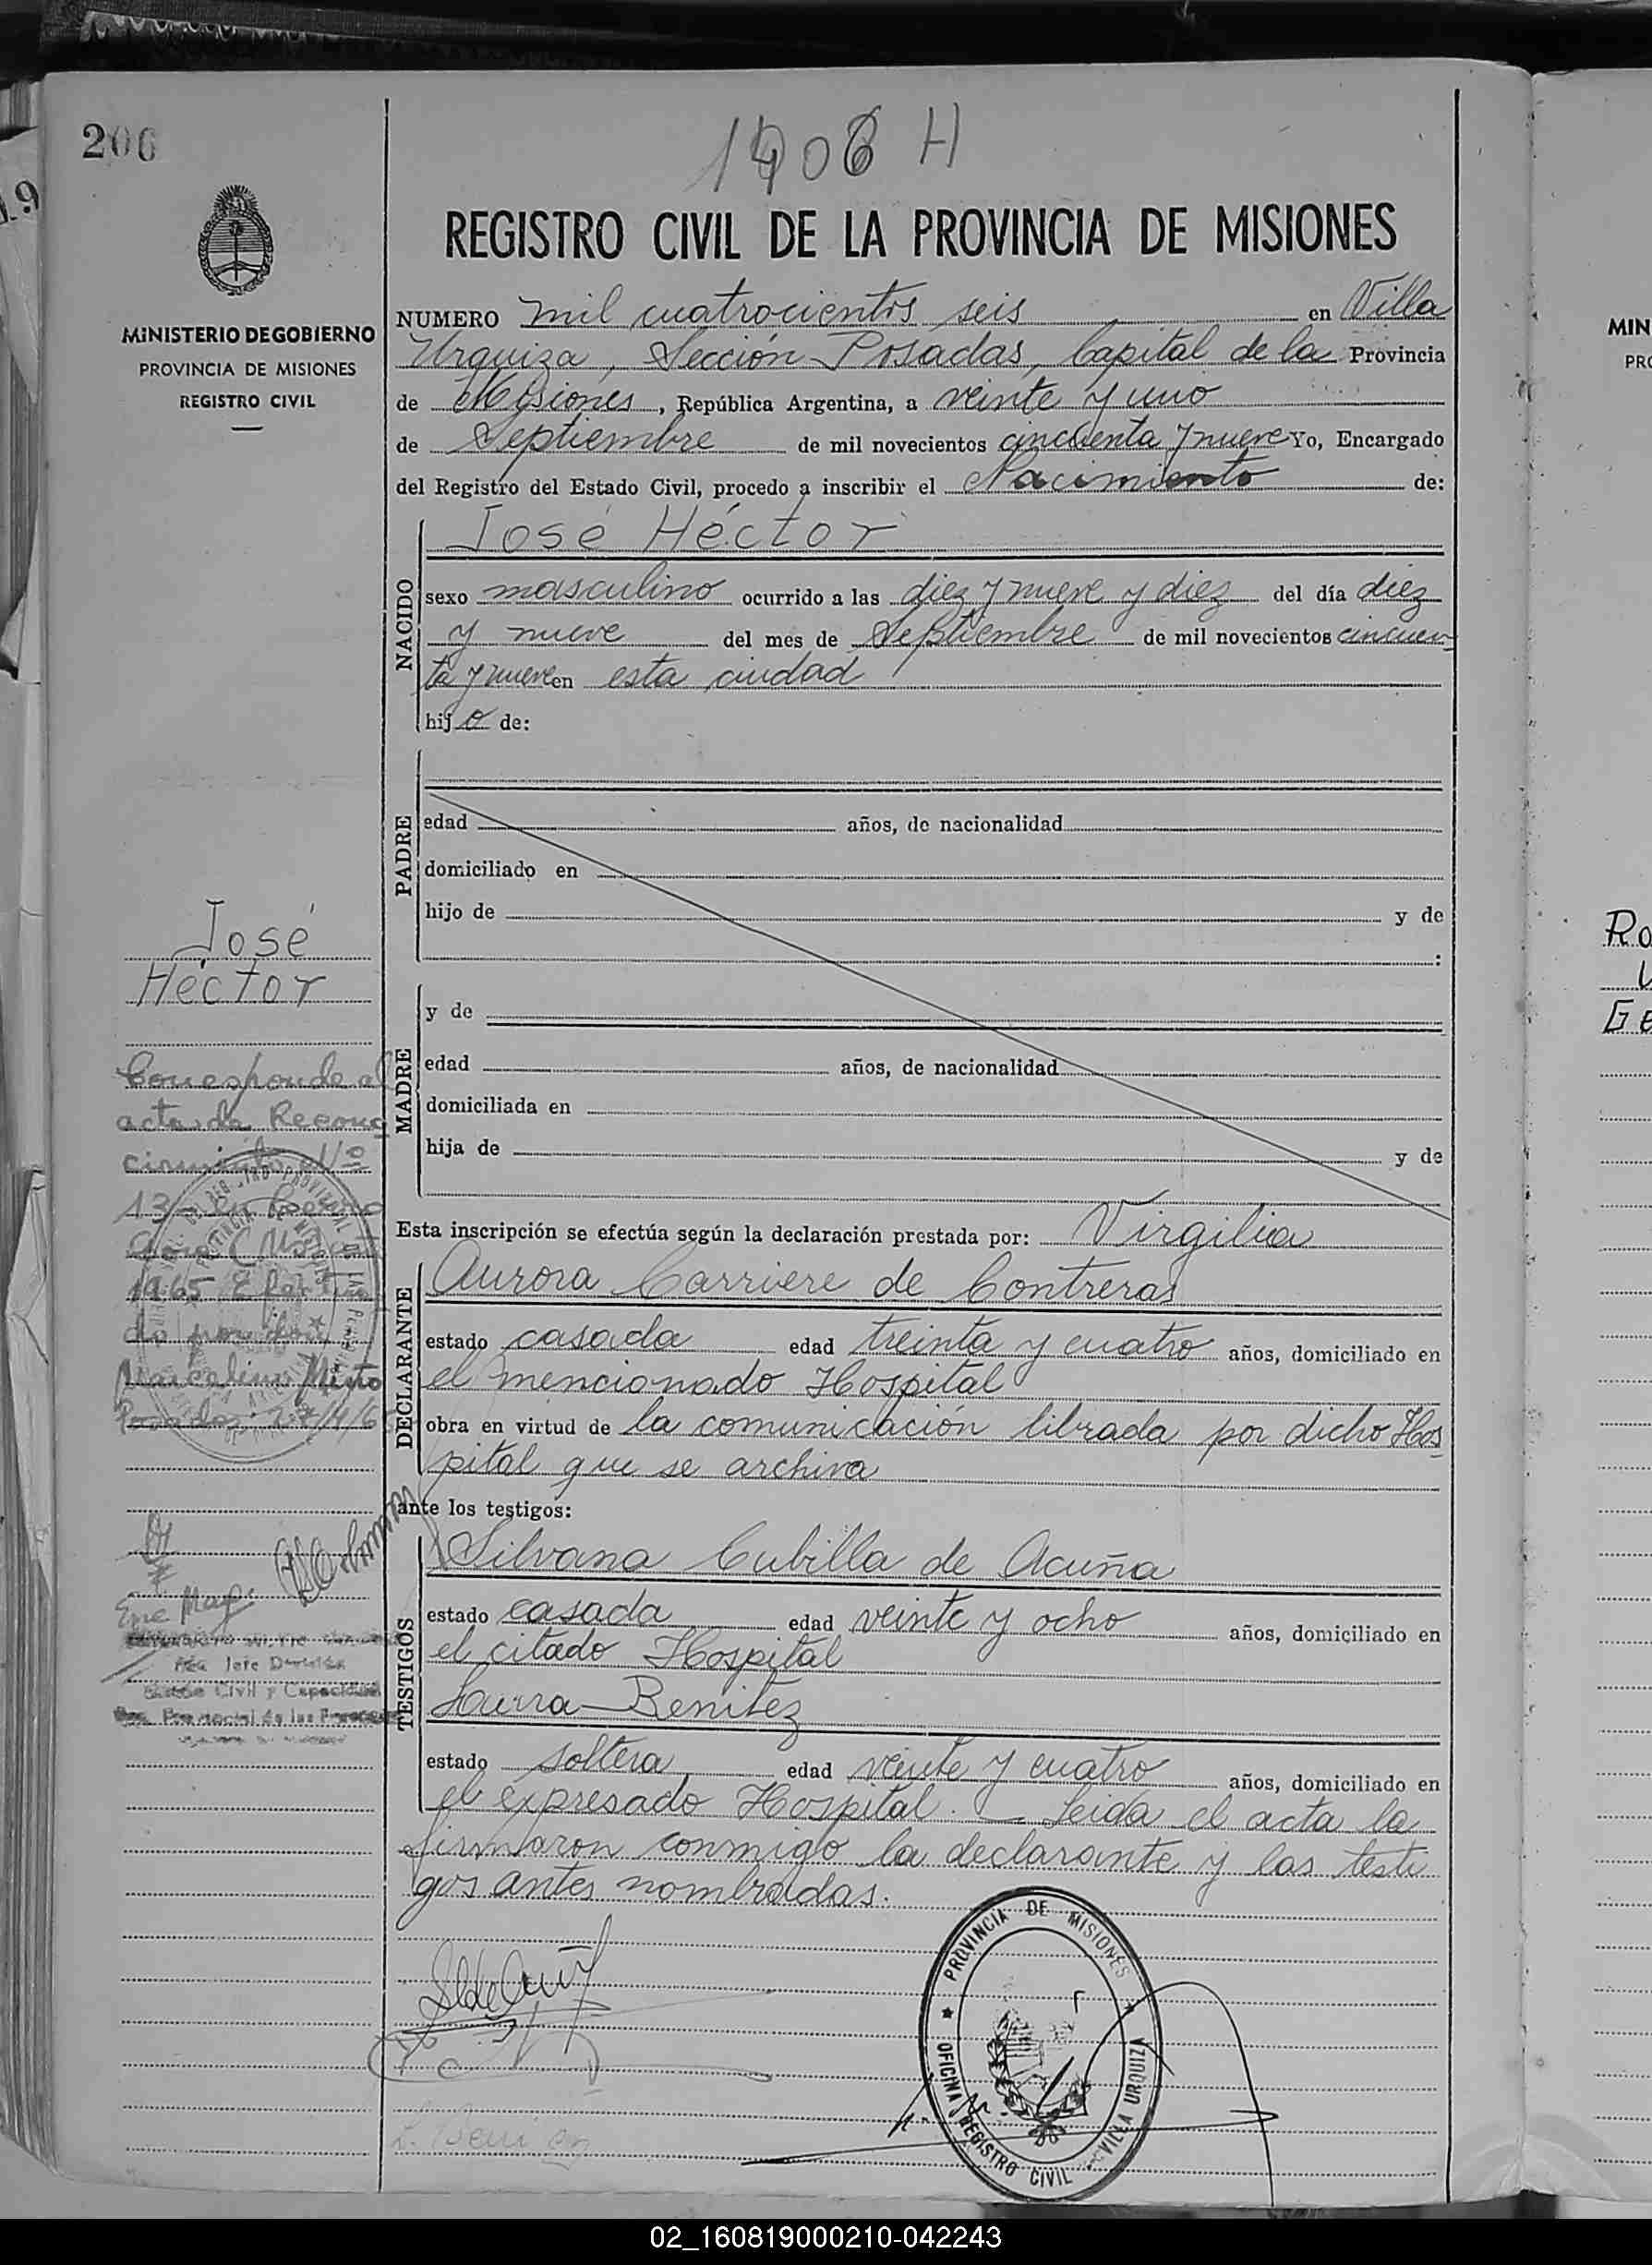 206
1406 H
REGISTRO CIVIL DE LA PROVINCIA DE MISIONES
MINISTERIO DE GOBIERNO
PROVINCIA DE MISIONES
REGISTRO CIVIL
NUMERO mil cuatrocientos seis en Villa
Urquiza, Sección Posadas, Capital de la Provincia
de Misiones, República Argentina, a veinte y uno
de Septiembre de mil novecientos cincuenta y nueve Yo, Encargado
del Registro del Estado Civil, procedo a inscribir el Nacimiento de:
NACIDO
José Héctor
sexo masculino ocurrido a las diez y nueve y diez del día diez
y nueve del mes de Septiembre de mil novecientos cincuen
ta y nueve en esta ciudad
hijo de:
PADRE
edad años, de nacionalidad
domiciliado en
hijo de y de
:
MADRE
y de
edad años, de nacionalidad
domiciliada en
hija de y de
Esta inscripción se efectúa según la declaración prestada por: Virgilia
DECLARANTE
Aurora Carriere de Contreras
estado casada edad treinta y cuatro años, domiciliado en
el mencionado Hospital
obra en virtud de la comunicación librada por dicho Hos
pital que se archiva
ante los testigos:
TESTIGOS
Silvana Cubilla de Acuña
estado casada edad veinte y ocho años, domiciliado en
el citado Hospital
Laura Benitez
estado soltera edad veinte y cuatro años, domiciliado en
el expresado Hospital. Leida el acta la
firmaron conmigo la declarante y las testi
gos antes nombradas.
José
Héctor
Corresponde al
acta de Recono
cimiento Nº
13
1965
Marcelino
PROVINCIA DE MISIONES
OFICINA REGISTRO CIVIL VILLA URQUIZA
MIN
PRO
Ro
Ge
02_160819000210-042243